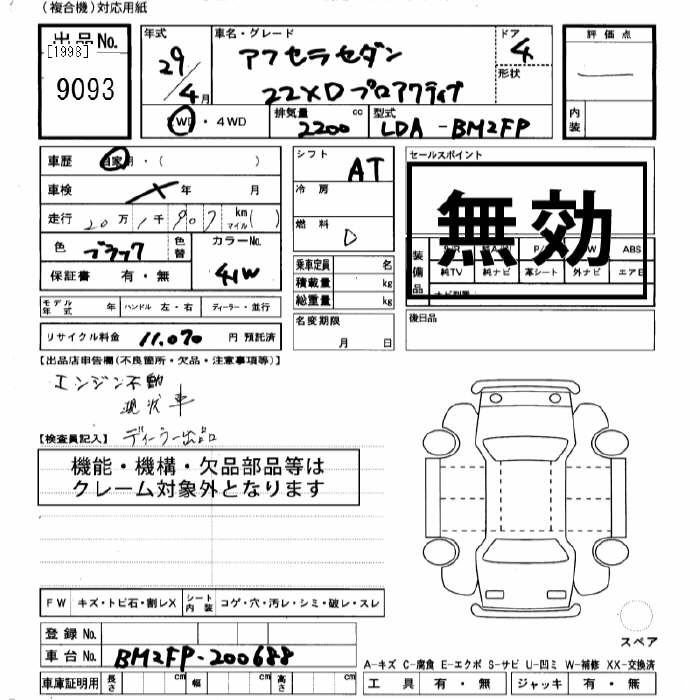 (複合機)対応用紙
出品No.
[1993]
9093
年式
29/4月
車名・グレード
アクセラセダン
22XD プロアクティブ
ドア
4
形状
評価点
内装
2WD・4WD
排気量
2200 cc
型式
LDA-BM2FP
車歴 自家用・( )
車検 年 月
走行 20万1千907 km マイル ( )
色 ブラック
色替
カラーNo.
41W
保証書 有・無
モデル年式 年 ハンドル 左・右 ディーラー・並行
リサイクル料金 11,070 円 預託済
シフト AT
冷房
燃料 D
乗車定員 名
積載量 kg
総重量 kg
名変期限
月 日
セールスポイント
無効
装備品
ABS
純TV 純ナビ 革シート 外ナビ エアB
後日品
【出品店申告欄(不良箇所・欠品・注意事項等)】
エンジン不動
現状車
【検査員記入】 ディーラー出品
機能・機構・欠品部品等は
クレーム対象外となります
FW キズ・トビ石・割レX シート内装 コゲ・穴・汚レ・シミ・破レ・スレ
登録No.
車台No. BM2FP-200688
車庫証明用 長さ cm 幅 cm 高さ cm
スペア
A-キズ C-腐食 E-エクボ S-サビ U-凹ミ W-補修 XX-交換済
工具 有・無 ジャッキ 有・無